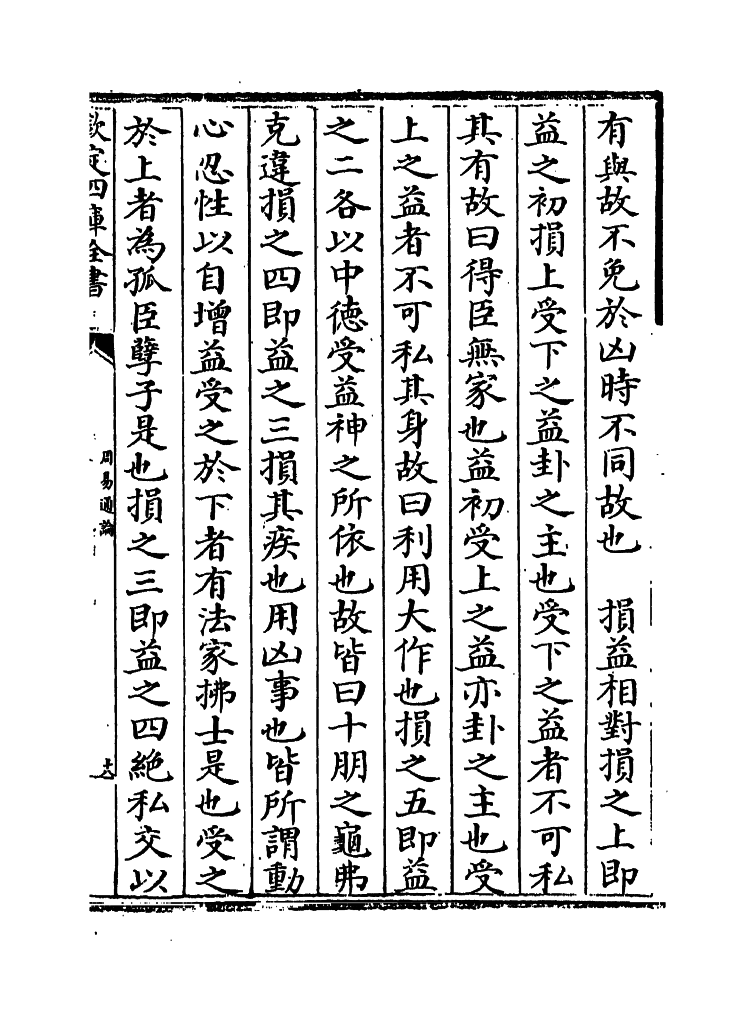 有與故不免於凶時不同故也　損益相對損之上即
益之初損上受下之益卦之主也受下之益者不可私
其有故曰得臣無家也益初受上之益亦卦之主也受
上之益者不可私其身故曰利用大作也損之五即益
之二各以中徳受益神之所依也故皆曰十朋之龜弗
克違損之四即益之三損其疾也用凶事也皆所謂動
心忍性以自增益受之於下者有法家拂士是也受之
於上者為孤臣孽子是也損之三即益之四絶私交以
欽定四庫全書
周易通論